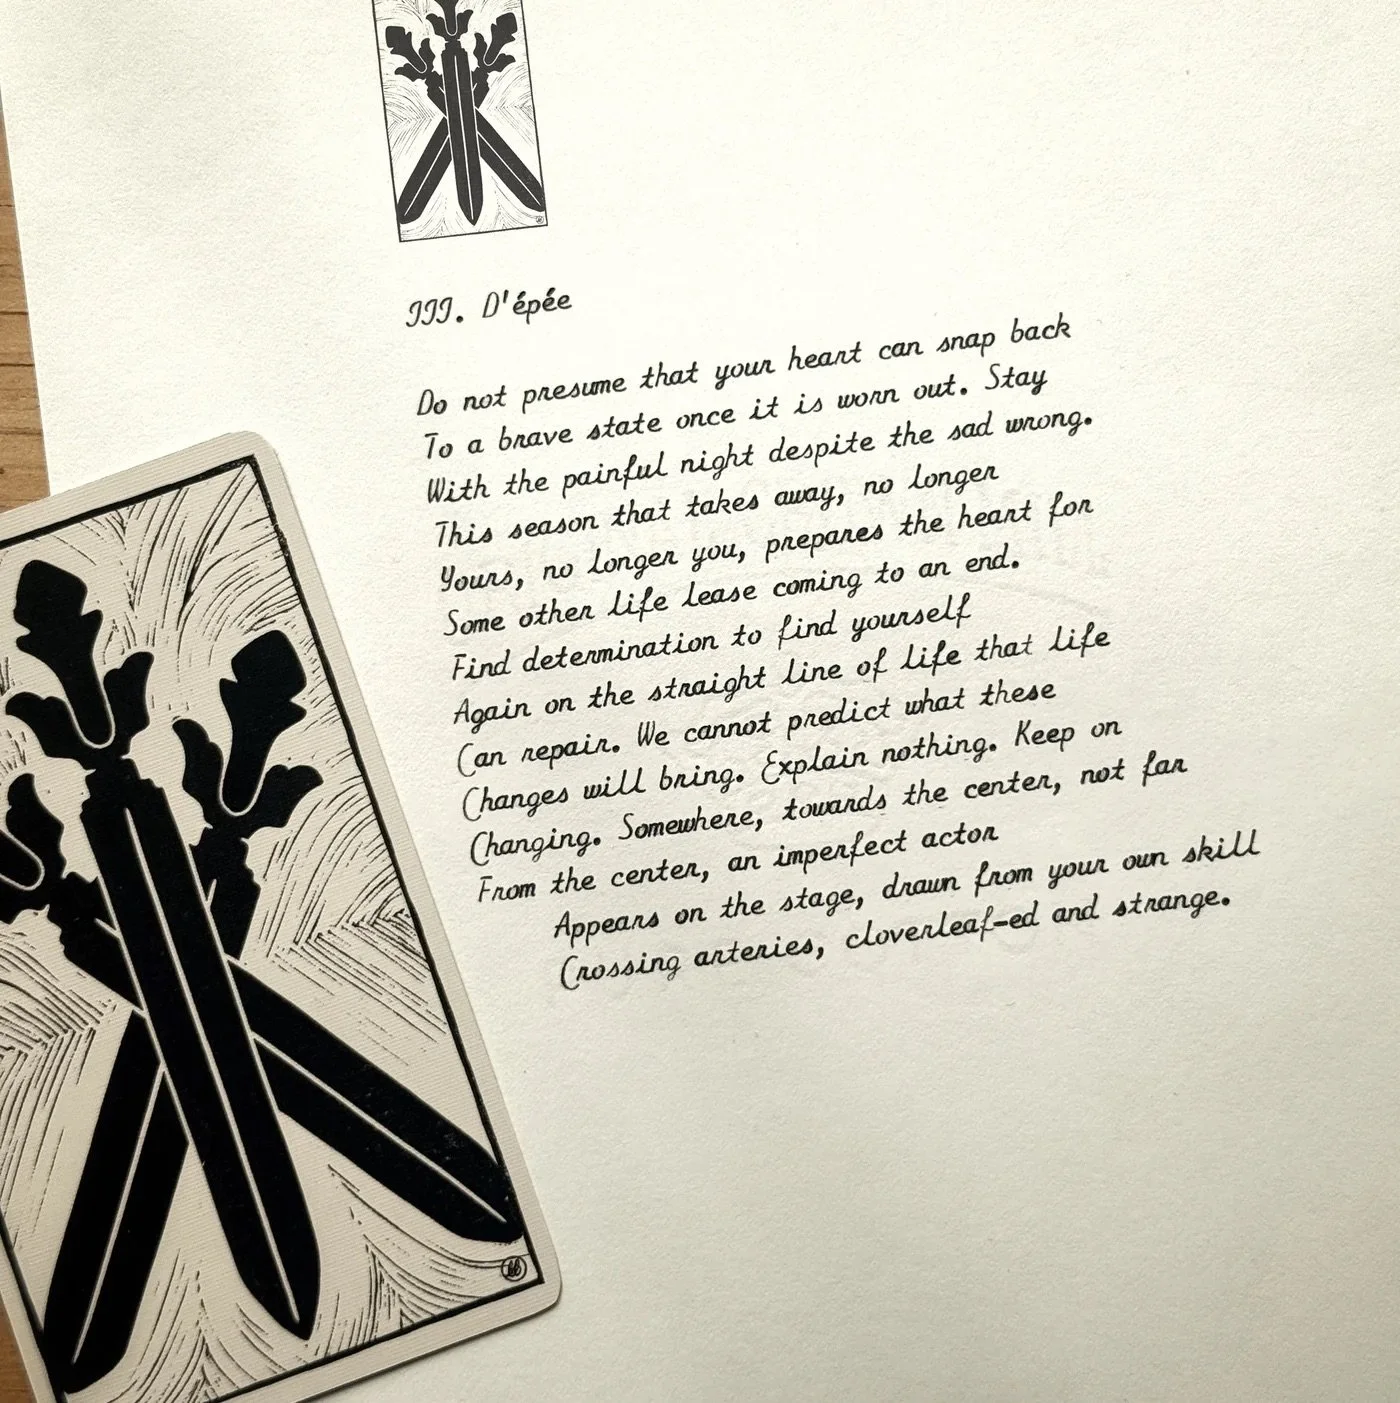 III. D'épée
Do not presume that your heart can snap back
To a brave state once it is worn out. Stay
With the painful night despite the sad wrong.
This season that takes away, no longer
Yours, no longer you, prepares the heart for
Some other life lease coming to an end.
Find determination to find yourself
Again on the straight line of life that life
Can repair. We cannot predict what these
Changes will bring. Explain nothing. Keep on
Changing. Somewhere, towards the center, not far
From the center, an imperfect actor
Appears on the stage, drawn from your own skill
Crossing arteries, cloverleaf-ed and strange.